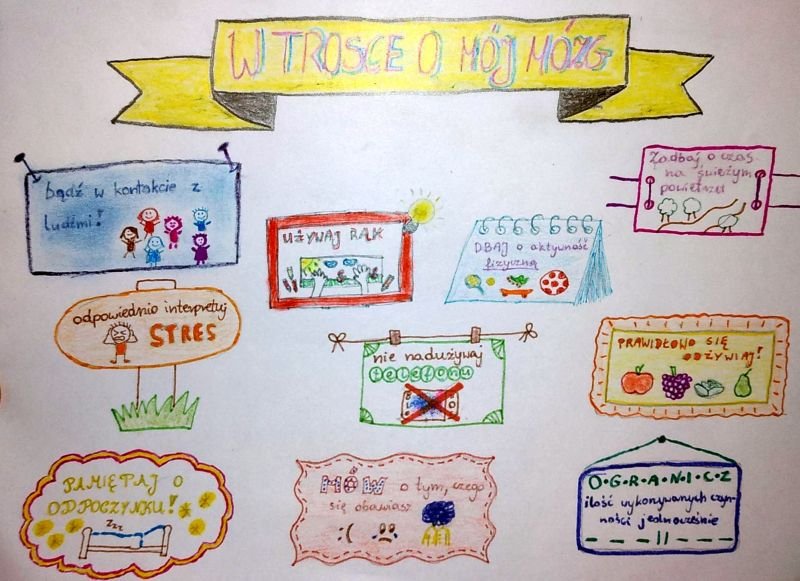 W TROSCE O MÓJ MÓZG
bądź w kontakcie z
ludźmi!
Zadbaj o czas
na świeżym
powietrzu
UŻYWAJ RĄK
DBAJ o aktywność
fizyczną
odpowiednio interpretuj
STRES
nie nadużywaj
telefonu
PRAWIDŁOWO SIĘ
ODŻYWIAJ!
PAMIĘTAJ O
ODPOCZYNKU!
zzz
MÓW o tym, czego
się obawiasz
:(
O•G•R•A•N•I•C•Z
ilość wykonywanych czyn-
ności jednocześnie